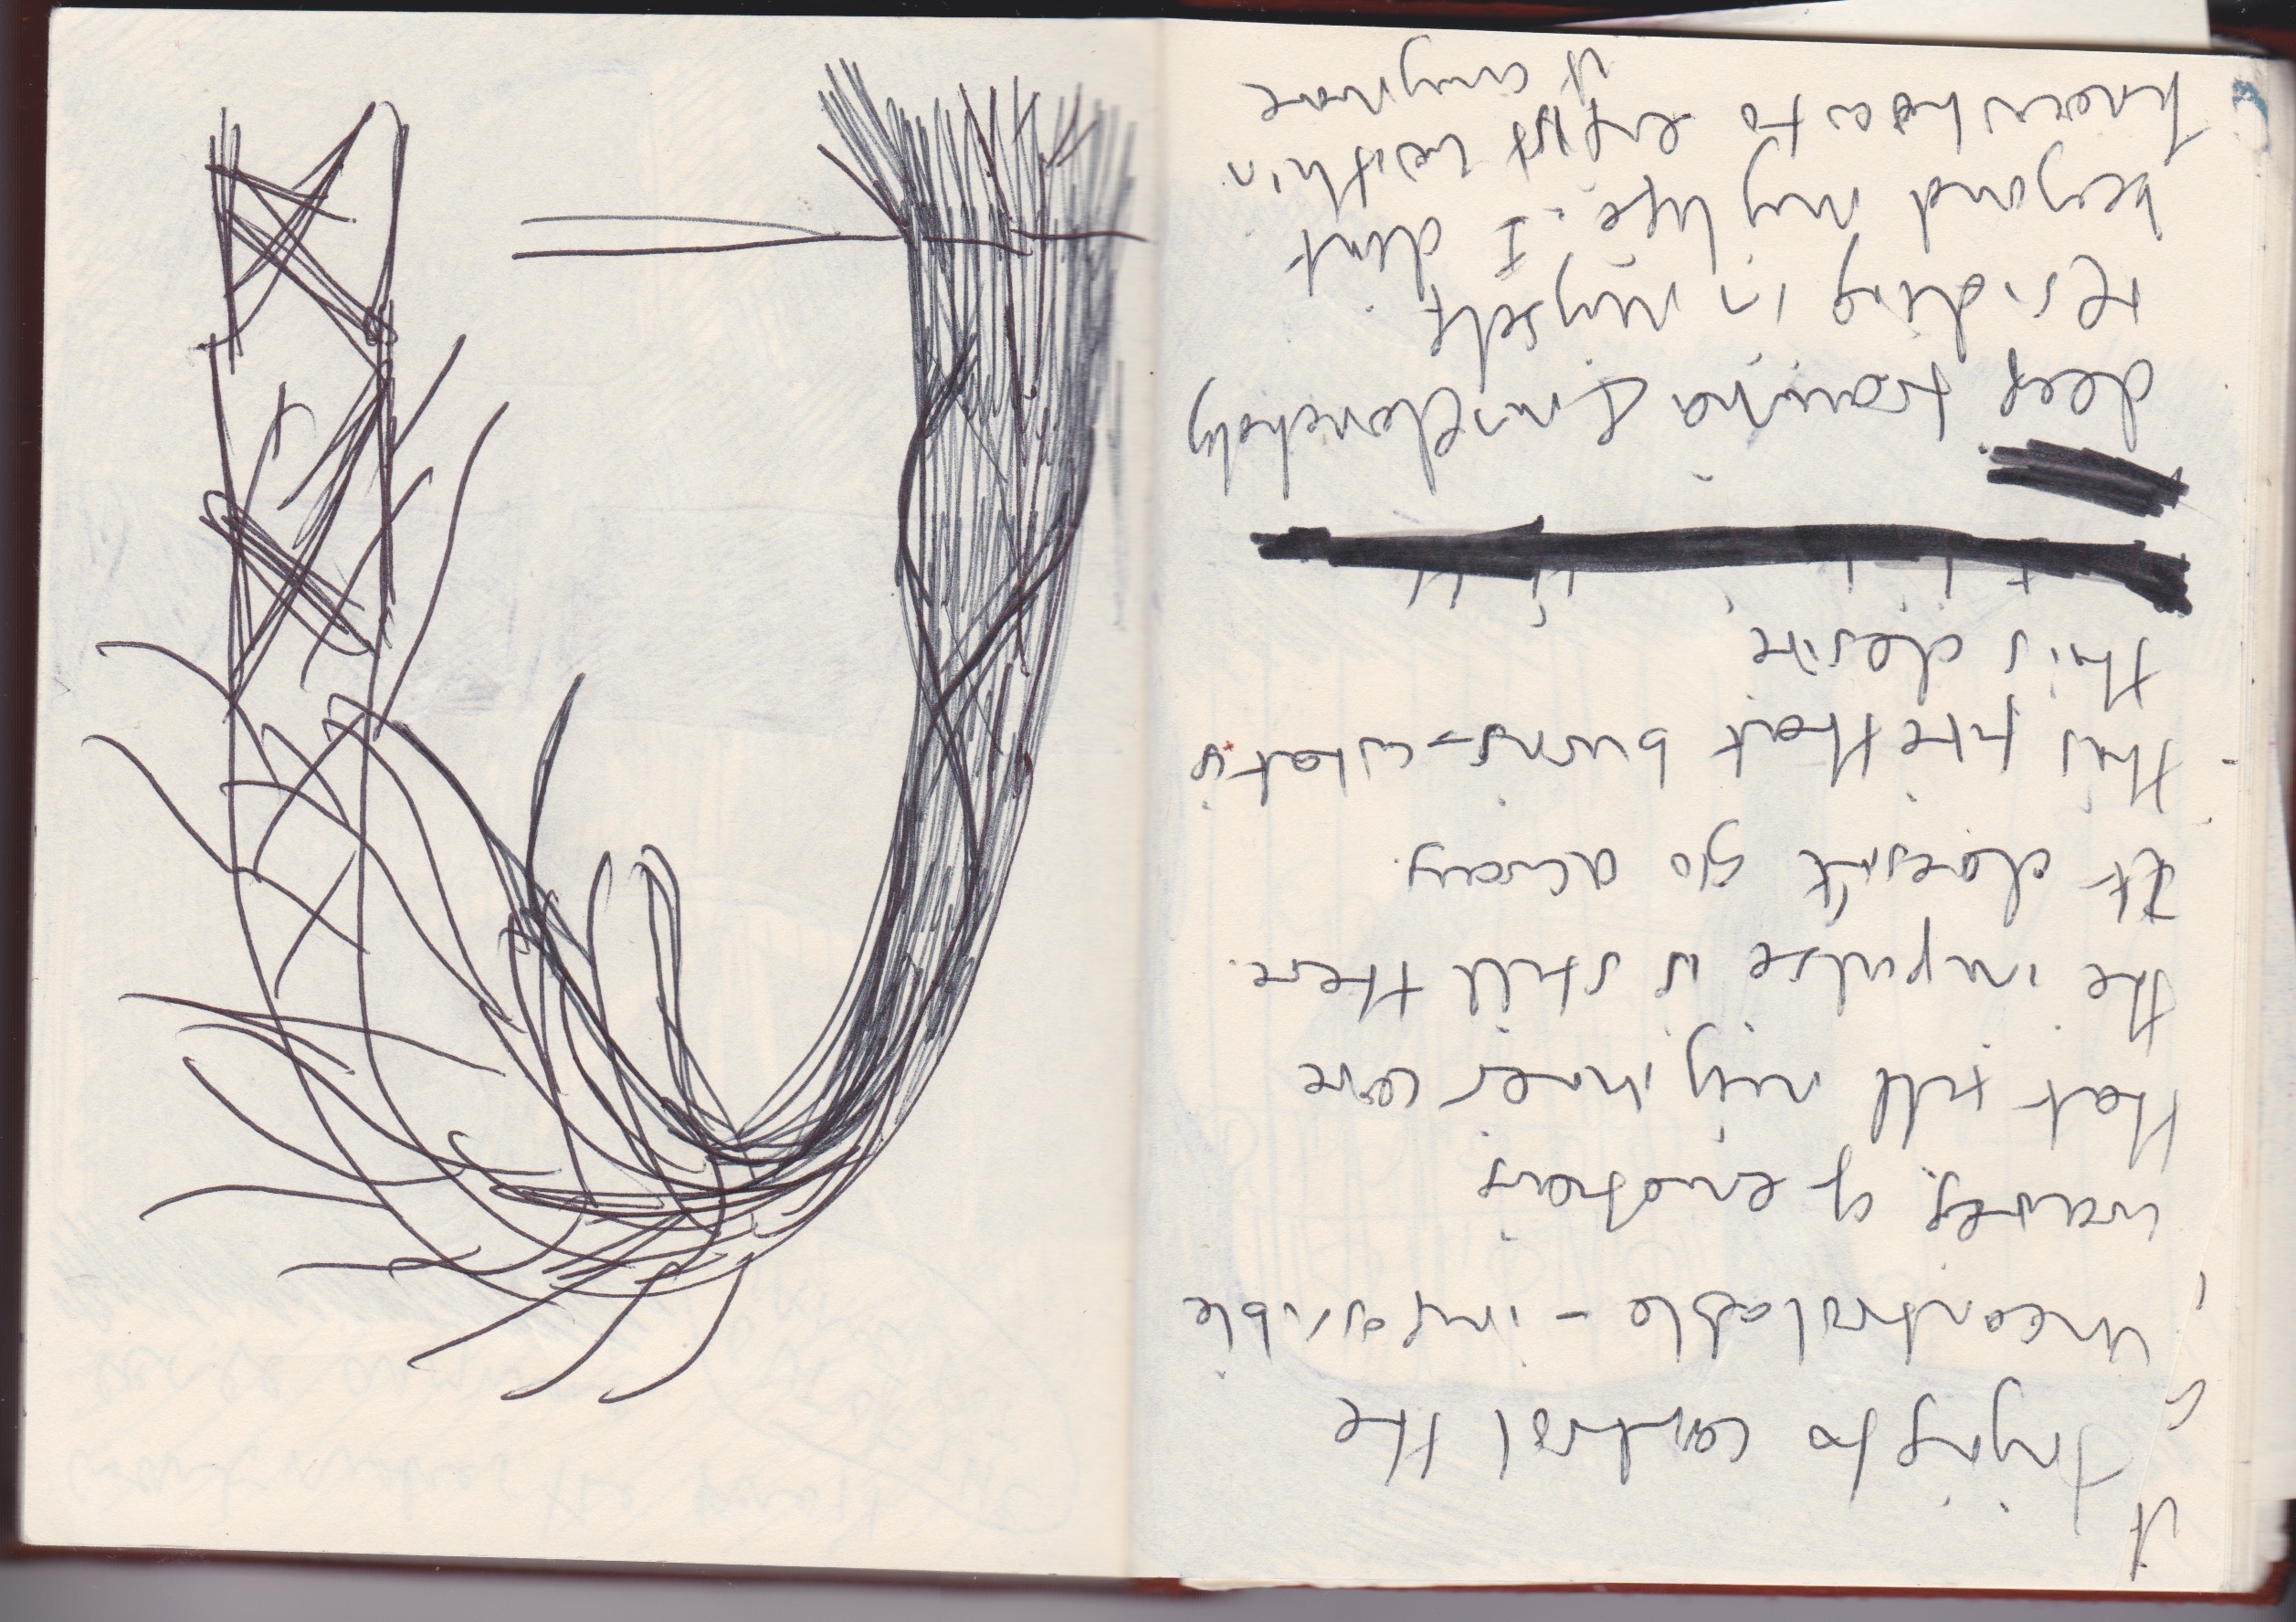 it
trying to control the
uncontrolable - impossible
waves, of emotions
that fill my inner core
the impulse is still there.
It doesn't go away.
this fire that burns - what is
this desire
deep trauma & melancholy
residing in myself
beyond my life. I dont
know how to exist within
it anymore